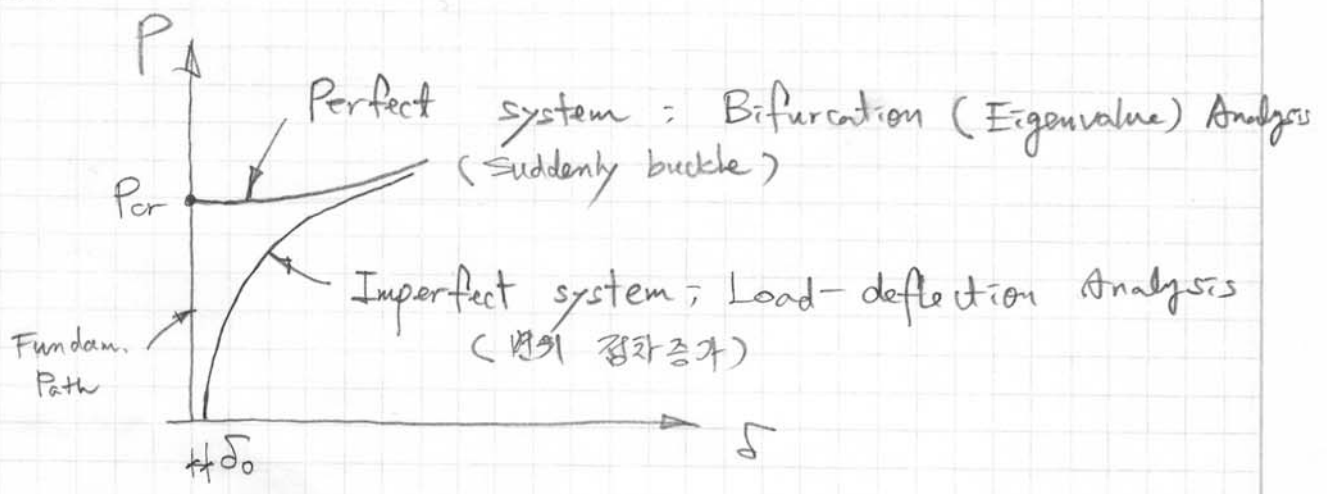 P
Perfect system : Bifurcation (Eigenvalue) Analysis
(Suddenly buckle)
Pcr
Imperfect system ; Load-deflection Analysis
(변위 점차증가)
Fundam.
Path
δ₀
δ